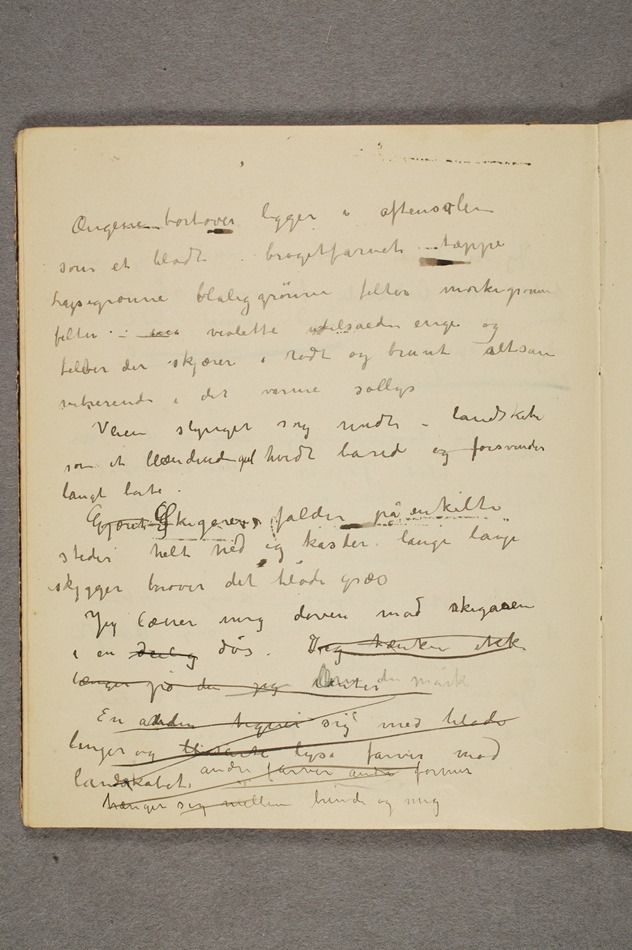 Engene bortover ligger i aftensolen
som et blødt brogetfarvet tæppe
lysegrønne blåliggrønne felter mørkegrønne
felter – violette udilsaede enge og
felter der skjærer i rødt og brunt altsam
vibrerende i det varme sollys
Veien slynget sig midt i landskabet
som et blændendegul hvidt bånd og forsvinder
langt borte.
Skigaren falder på enkelte
steder helt ned og kaster lange lange
skygger bover det bløde græs
Jeg læner mig doven mod skigaren
i en deilig døs. Jeg tænker ikke
længer på den jeg venter
En anden tegner sig med bløde
linjer og lyse farver mod
landskabet andre farver andre former
hænger sig mellem hende og mig